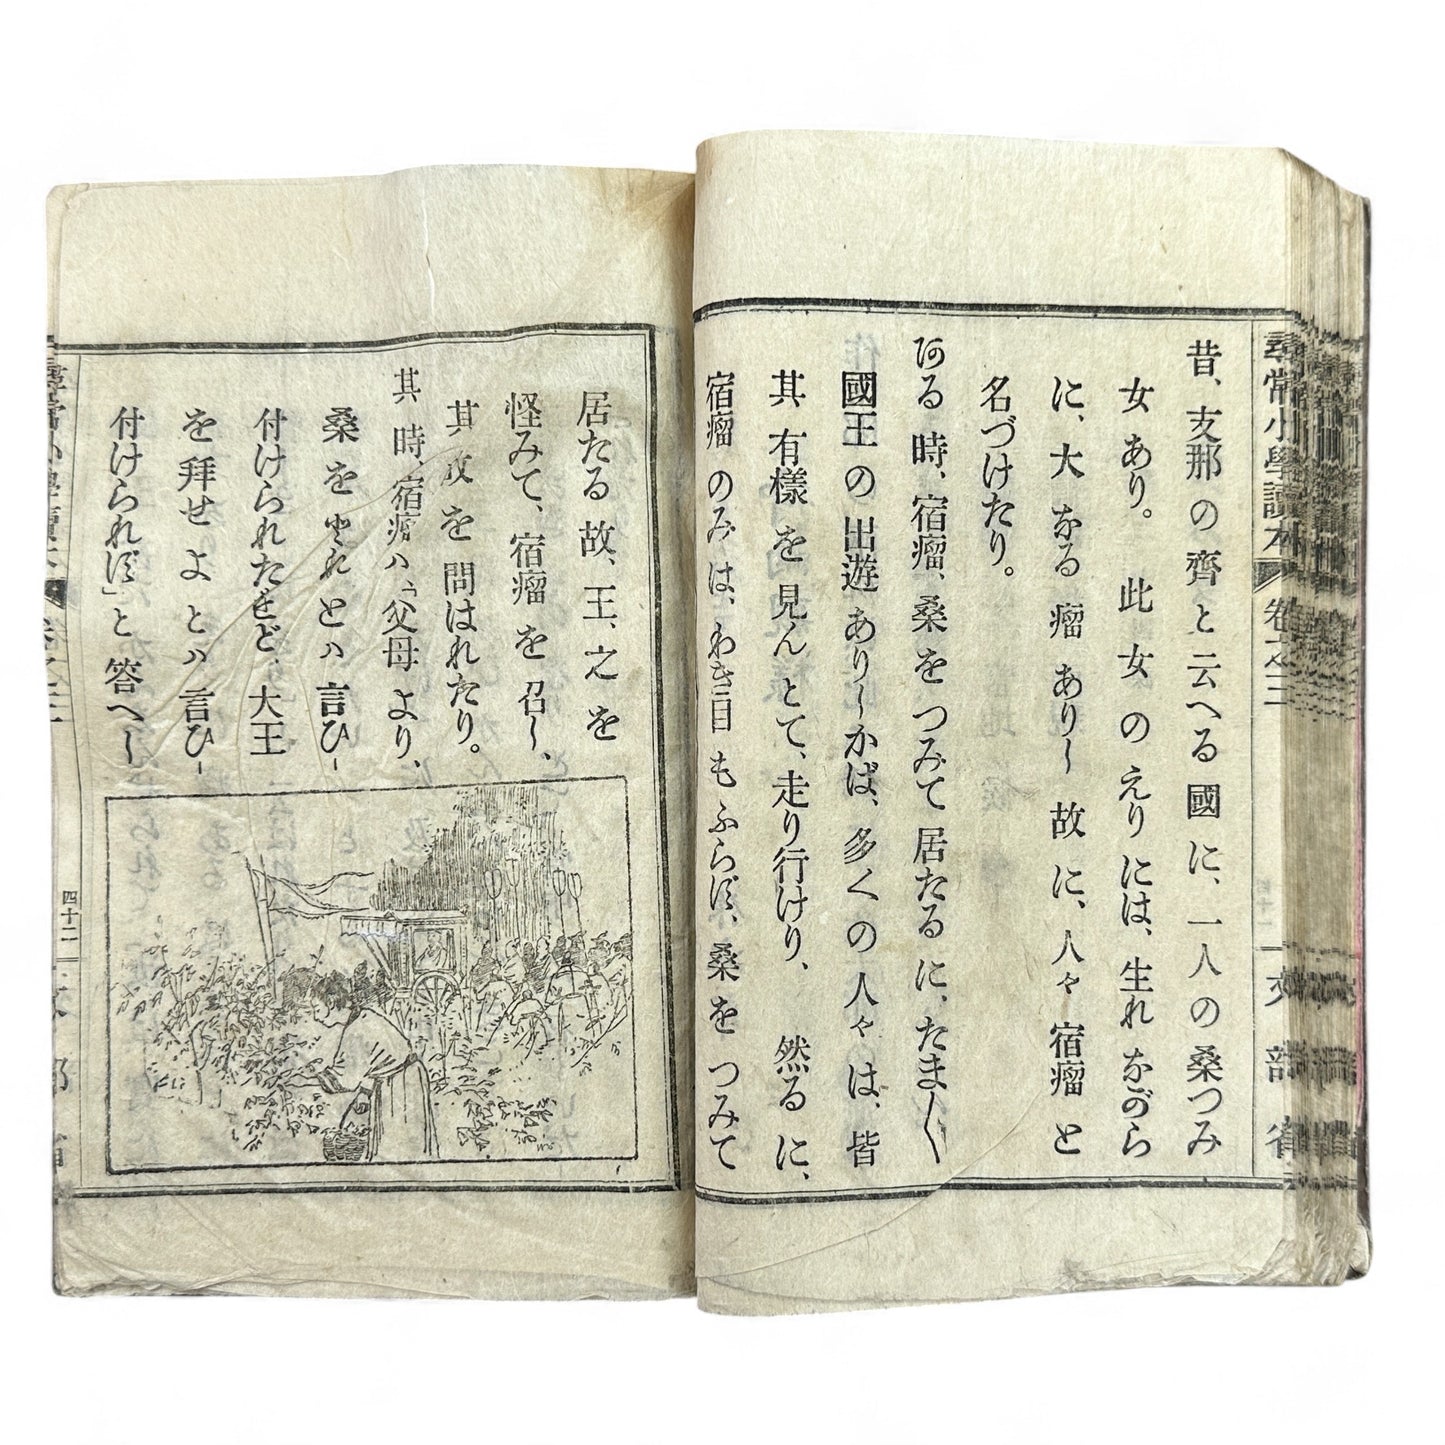 尋常小學讀本 卷之三 文部省
昔、支那の齊と云へる國に、一人の桑つみ
女あり。此女のえりには、生れながら
に、大なる瘤ありし故に、人々宿瘤と
名づけたり。
ある時、宿瘤、桑をつみて居たるに、たまたま
國王の出遊ありしかば、多くの人々は、皆
其有樣を見んとて、走り行けり、然るに、
宿瘤のみは、わき目もふらず、桑をつみて
居たる故、王、之を
怪みて、宿瘤を召し、
其故を問はれたり。
其時、宿瘤ハ、「父母より、
桑をとれとハ言ひ
付けられたれど、大王
を拜せよとハ言ひ
付けられず」と答へし
尋常小學讀本 卷之三 四十二 文部省